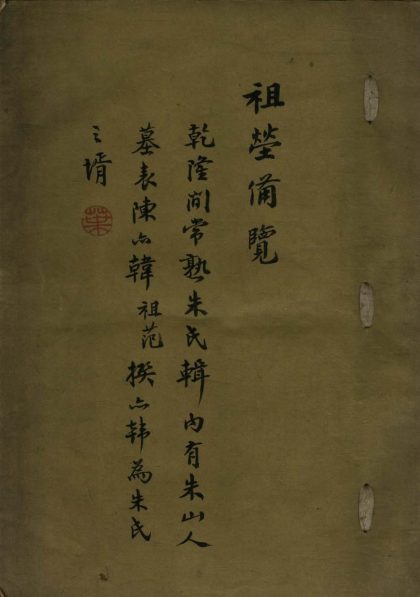 祖塋備覽
乾隆間常熟朱氏輯內有朱山人
墓表陳亦韓祖范撰亦韓為朱氏
之壻
葉